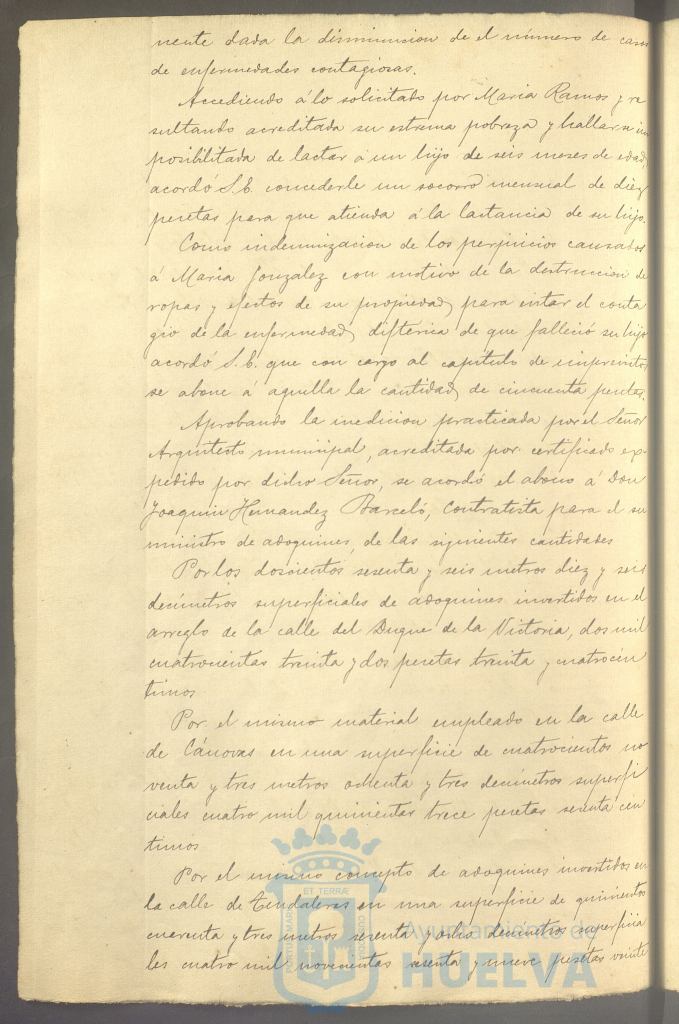 nente dada la disminucion de el número de casos
de enfermedades contagiosas.
Accediendo á lo solicitado por Maria Ramos y re
sultando acreditada su estrema pobreza y hallarse im
posibilitada de lactar á un hijo de seis meses de edad,
acordó S.E. concederle un socorro mensual de diez
pesetas para que atienda á la lactancia de su hijo.
Como indemnizacion de los perjuicios causados
á Maria Gonzalez con motivo de la destruccion de
ropas y efectos de su propiedad, para evitar el conta
gio de la enfermedad diftérica de que falleció su hijo
acordó S.E. que con cargo al capitulo de imprevistos
se abone á aquella la cantidad de cincuenta pesetas.
Aprobando la medicion practicada por el Señor
Arquitecto municipal, acreditada por certificado ex-
pedido por dicho Señor, se acordó el abono á Don
Joaquin Hernandez Barceló, contratista para el su
ministro de adoquines, de las siguientes cantidades
Por los doscientos sesenta y seis metros diez y seis
decimetros superficiales de adoquines invertidos en el
arreglo de la calle del Duque de la Victoria, dos mil
cuatrocientas treinta y dos pesetas treinta y cuatro cén
timos
Por el mismo material empleado en la calle
de Cánovas en una superficie de cuatrocientos no
venta y tres metros ochenta y tres decimetros superfi
ciales cuatro mil quinientas trece pesetas sesenta cén
timos
Por el mismo concepto de adoquines invertidos en
la calle de Tendaleras en una superficie de quinientos
cuarenta y tres metros sesenta y ocho decimetros superficia
les cuatro mil novecientas sesenta y nueve pesetas veinte
ET TERRÆ
PORTUS MARIS
CUSTODIA
Ayuntamiento de
HUELVA